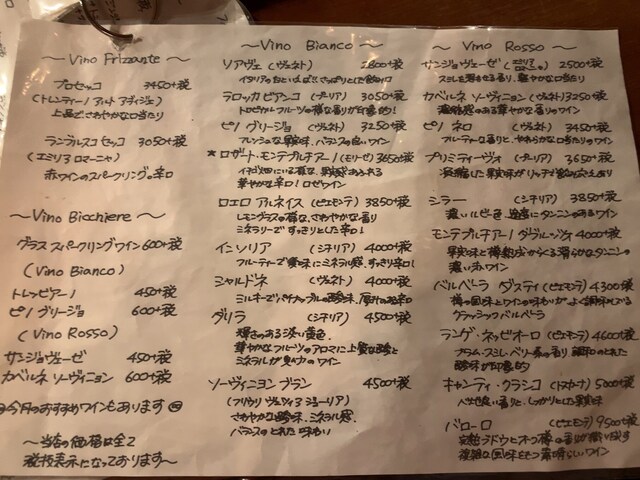 ～ Vino Frizzante ～
プロセッコ 3450+税
(トレンティーノ アルト アディジェ)
上品でさわやかな口当たり
ランブルスコ セッコ 3050+税
(エミリア ロマーニャ)
赤ワインのスパークリング。辛口
～ Vino Bicchiere ～
グラス スパークリングワイン 600+税
(Vino Bianco)
トレッビアーノ 450+税
ピノ グリージョ 600+税
(Vino Rosso)
サンジョヴェーゼ 450+税
カベルネ ソーヴィニヨン 600+税
今月のおすすめワインもあります
～当店の価格は全て
税抜表示になっております～
～ Vino Bianco ～
ソアヴェ (ヴェネト) 2800+税
イタリアの白といえば!! さっぱりとした飲み口
ラロッカ ビアンコ (プーリア) 3050+税
トロピカルフルーツの様な香りが印象的!
ピノ グリージョ (ヴェネト) 3250+税
フレッシュな果実味、バランスの良いワイン
★ロザート・モンテプルチアーノ (モリーゼ) 3650+税
イチゴ畑にいる様な、果実感あふれる
華やかな辛口！ロゼワイン
ロエロ アルネイス (ピエモンテ) 3850+税
レモングラスの様な、さわやかな香り
ミネラリーですっきりとした辛口！
インソリア (シチリア) 4000+税
フルーティーで豊味にミネラル感、すっきり辛口！
シャルドネ (ヴェネト) 4000+税
ミルキーでパイナップルの酸味、厚みのある辛口
グリラ (シチリア) 4500+税
輝きのある淡い黄色、
華やかなフルーツのアロマに上質な酸と
ミネラルが魅力のワイン
ソーヴィニヨン ブラン 4500+税
(フリウリ ヴェネツィア ジューリア)
さわやかな酸味、ミネラル感、
バランスのとれた味わい
～ Vino Rosso ～
サンジョヴェーゼ 2500+税
スミレを思わせる香り、軽やかな口当たり
カベルネ ソーヴィニヨン (ヴェネト) 3250+税
濃縮感のある華やかな香りのワイン
ピノ ネロ (ヴェネト) 3450+税
フルーティーな香りと、やわらかな口当たりのワイン
プリミティーヴォ (プーリア) 3650+税
凝縮した果実味がリッチで飲み応えあり
シラー (シチリア) 3850+税
濃いルビー色、適度にタンニンのあるワイン
モンテプルチアーノ ダブルッツォ 4000+税
果実味と樽熟成からくる滑らかなタンニンの
濃い赤ワイン
バルベラ ダスティ (ピエモンテ) 4300+税
樽の風味とワインの味わいがよく調和している
クラッシック バルベラ
ランゲ・ネッビオーロ (ピエモンテ) 4600+税
プラム・スミレ・ベリー系の香り 調和のとれた
酸味が印象的
キャンティ・クラシコ (トスカーナ) 5000+税
心地良い香りと、しっかりとした果実味
バローロ (ピエモンテ) 9500+税
をもつ素晴らしいワイン